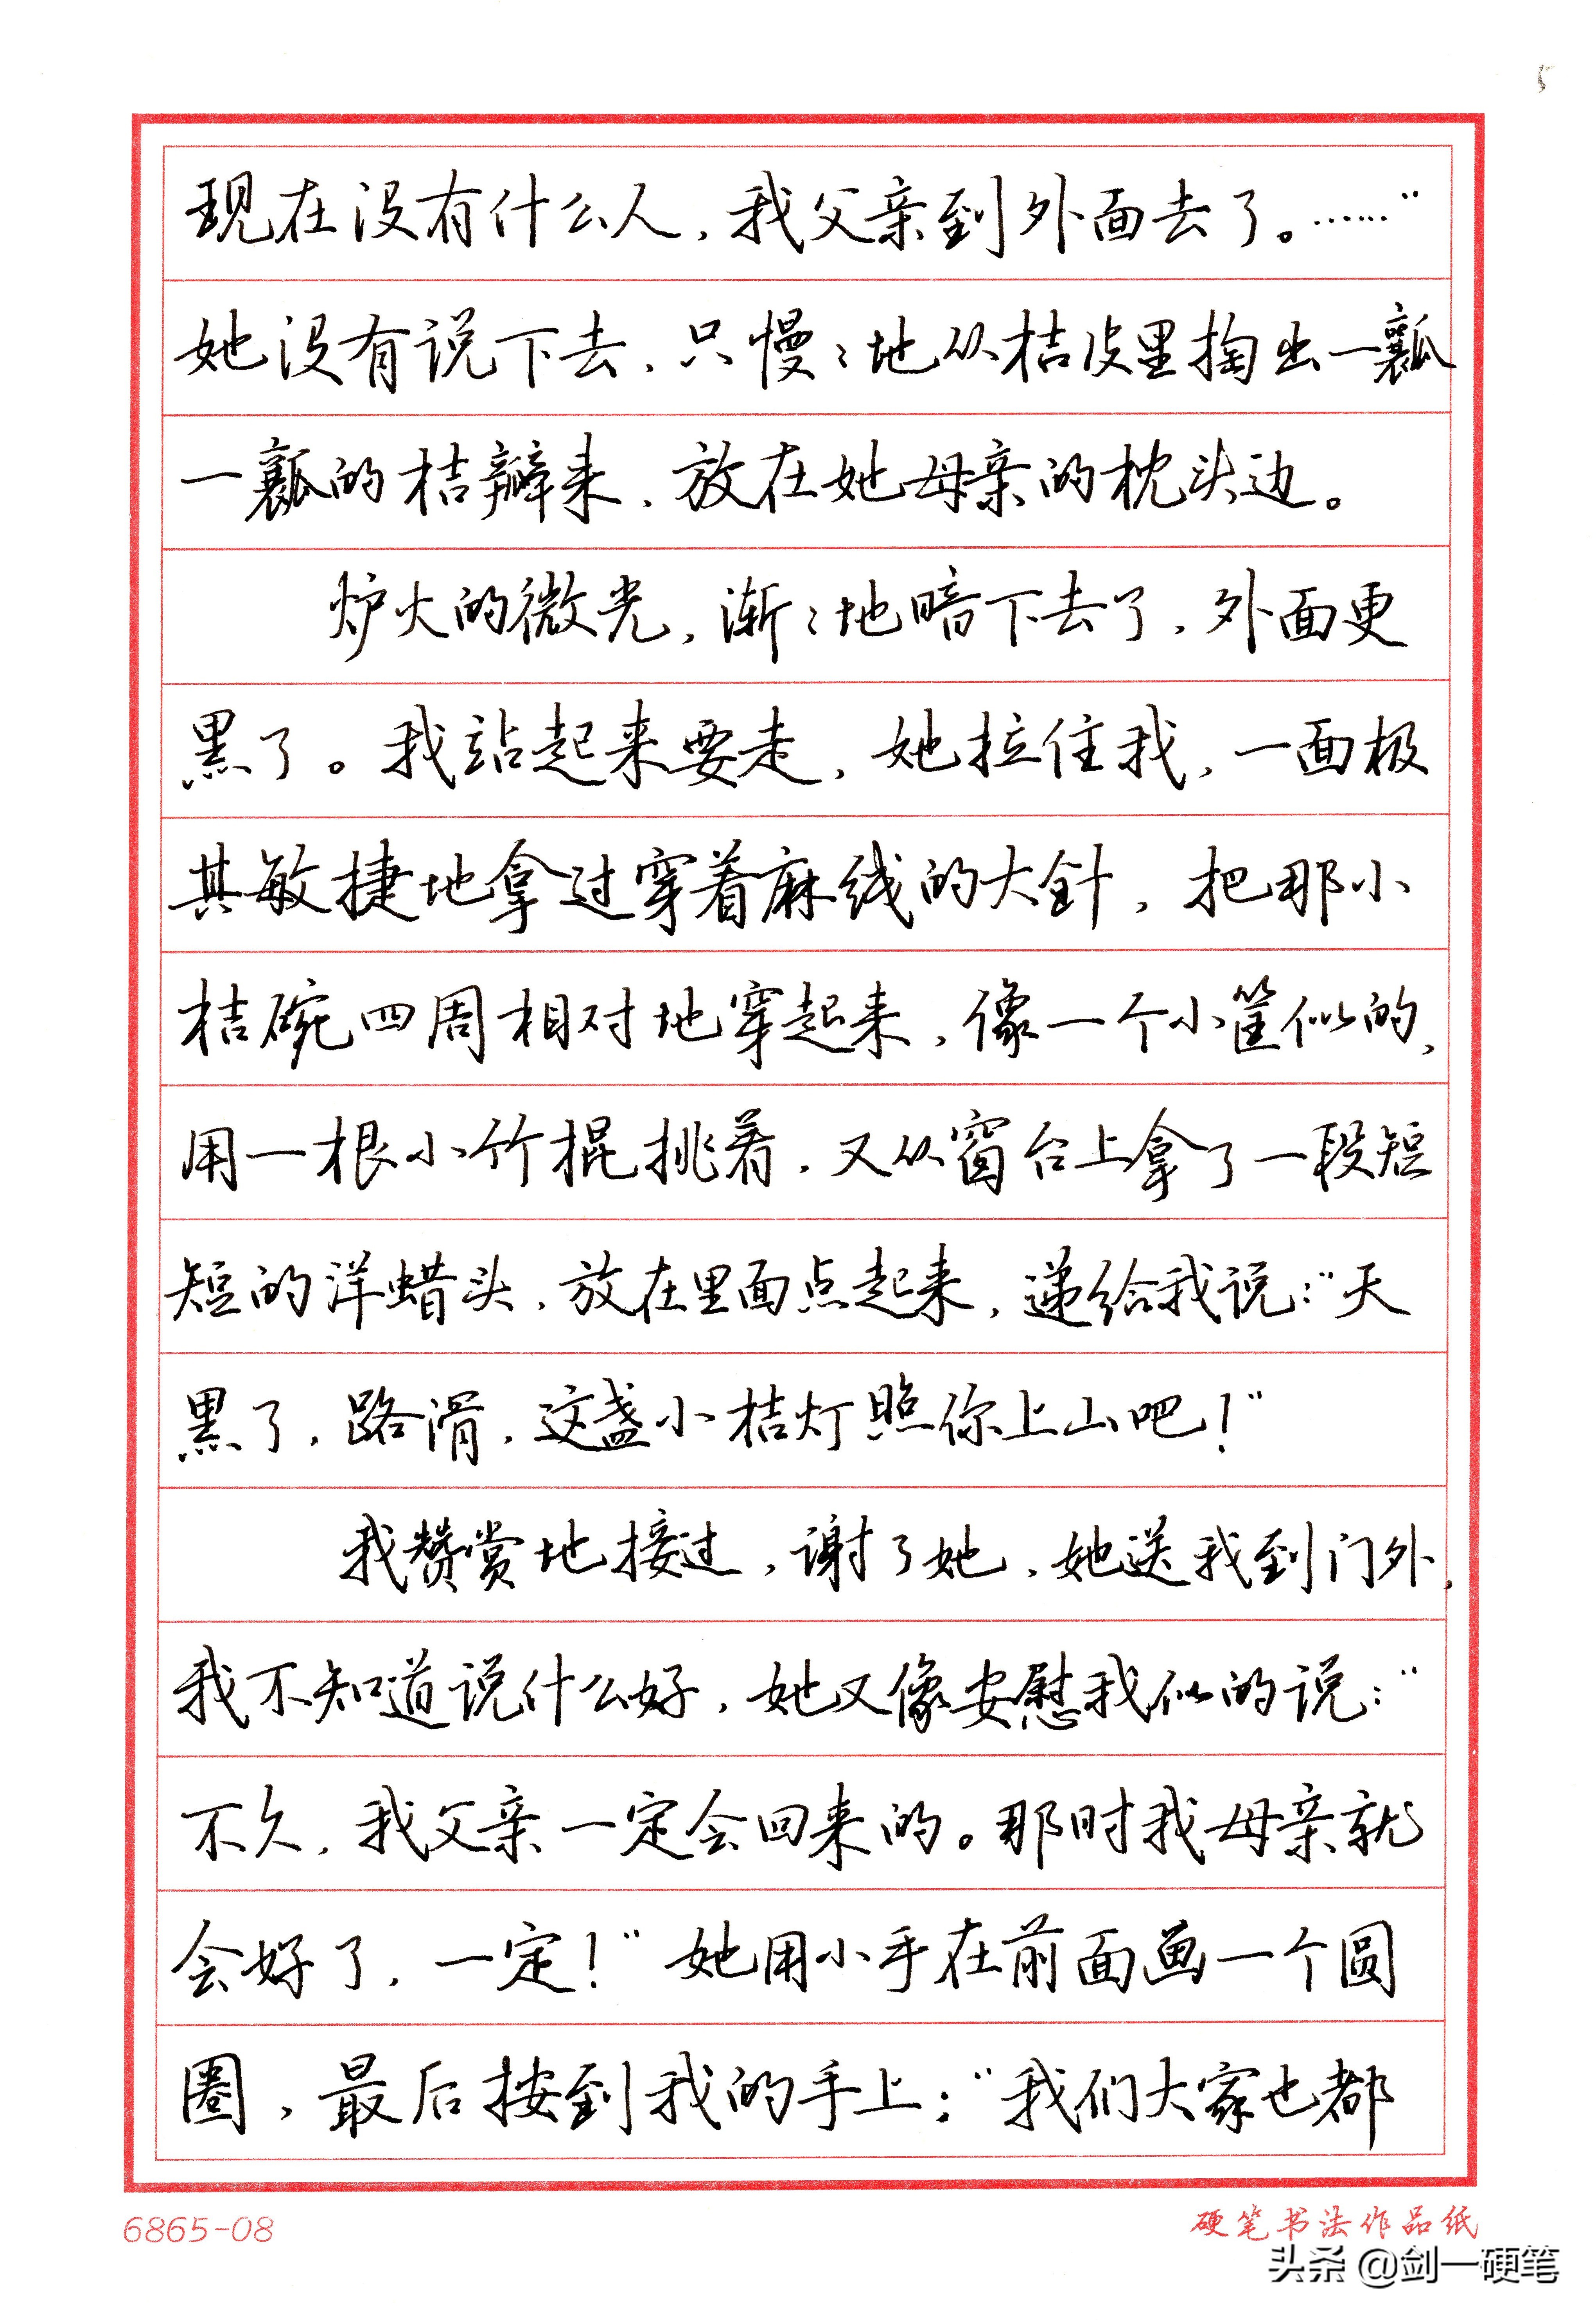 5
现在没有什么人，我父亲到外面去了。……”
她没有说下去，只慢〻地从桔皮里掏出一瓤
一瓤的桔瓣来，放在她母亲的枕头边。
炉火的微光，渐〻地暗下去了，外面更
黑了。我站起来要走，她拉住我，一面极
其敏捷地拿过穿着麻线的大針，把那小
桔碗四周相对地穿起来，像一个小筐似的，
用一根小竹棍挑着，又从窗台上拿了一段短
短的洋蜡头，放在里面点起来，递给我说：“天
黑了，路滑，这盏小桔灯照你上山吧！”
我赞赏地接过，谢了她，她送我到门外，
我不知道说什么好，她又像安慰我似的说：“
不久，我父亲一定会回来的。那时我母亲就
会好了，一定！”她用小手在前面画一个圆
圈，最后按到我的手上；“我们大家也都
6865-08
硬笔书法作品纸
头条 @剑一硬笔